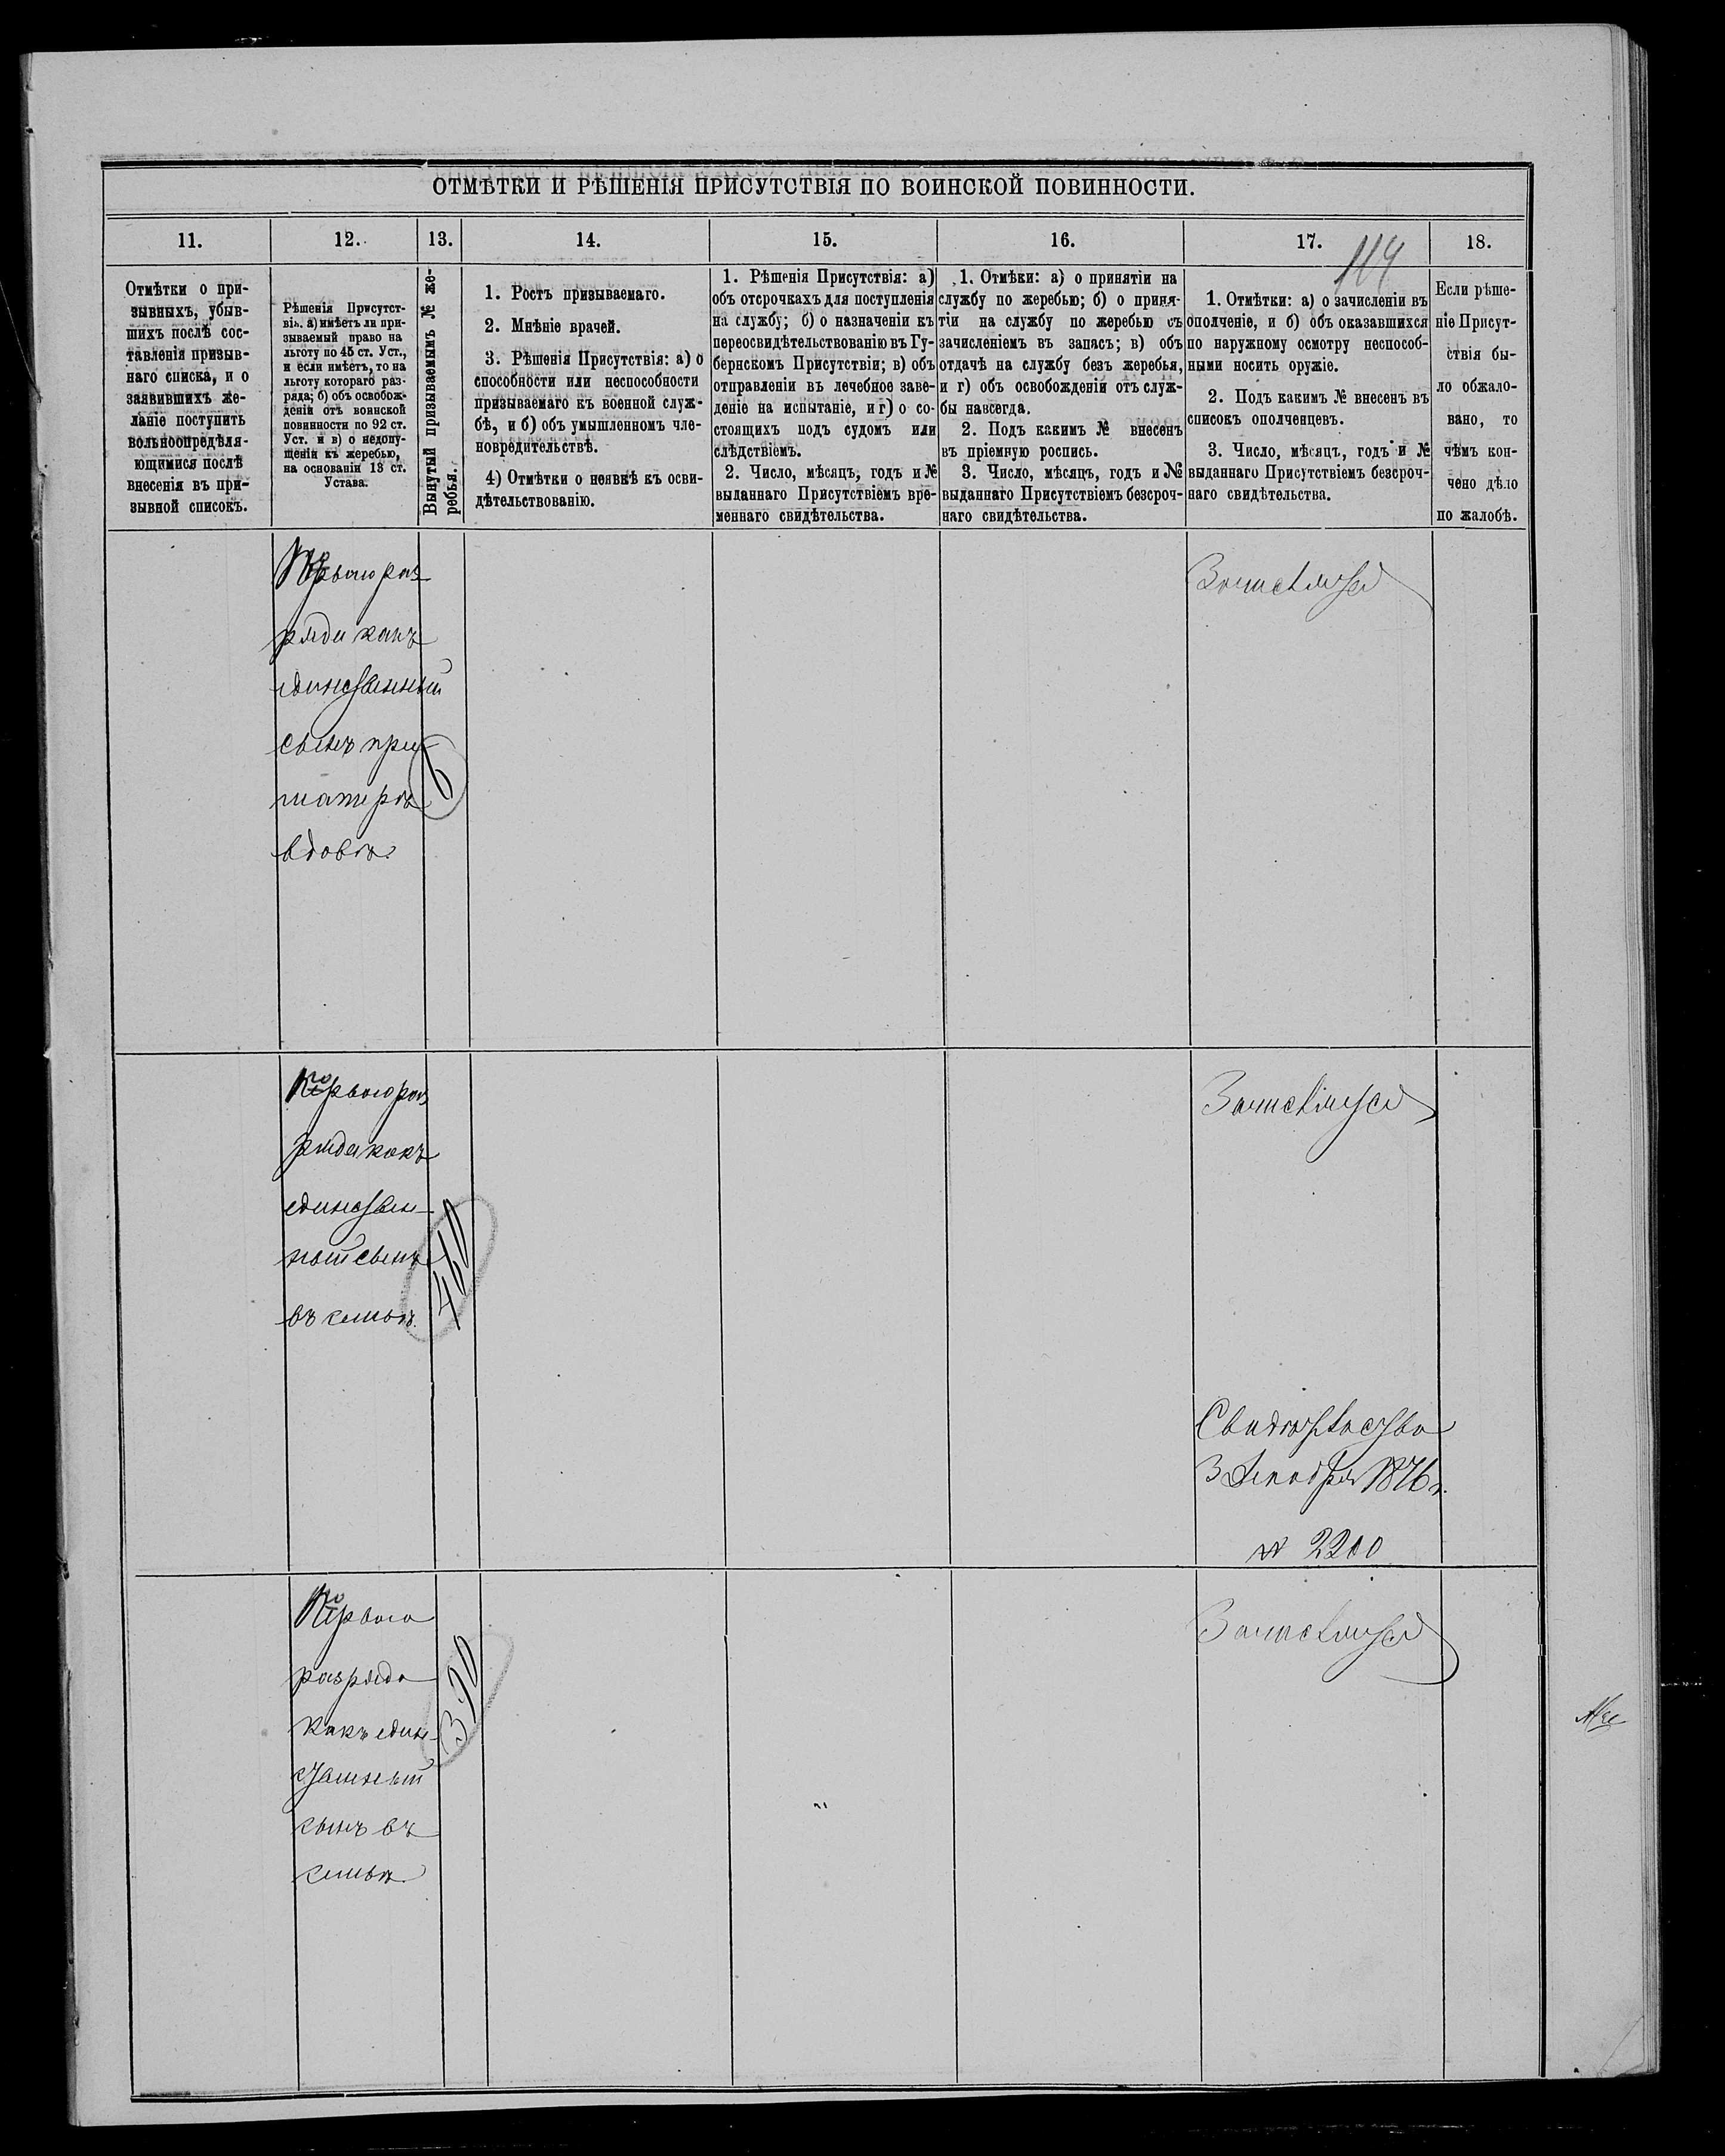 ОТМѢТКИ И РѢШЕНІЯ ПРИСУТСТВІЯ ПО ВОИНСКОЙ ПОВИННОСТИ.
11.
12.
13.
14.
15.
16.
17.
18.
114
Отмѣтки о при-
зывныхъ, убыв-
шихъ послѣ сос-
тавленія призыв-
наго списка, и о
заявившихъ же-
ланіе поступить
вольноопредѣля-
ющимися послѣ
внесенія въ при-
зывной списокъ.
Рѣшенія Присутст-
вія. а) имѣетъ ли при-
зываемый право на
льготу по 45 ст. Уст.,
и если имѣетъ, то на
льготу котораго раз-
ряда; б) объ освобож-
деніи отъ воинской
повинности по 92 ст.
Уст. и в) о недопу-
щеніи къ жеребью,
на основаніи 13 ст.
Устава.
Вынутый призываемымъ № же-
ребья.
1. Ростъ призываемаго.
2. Мнѣніе врачей.
3. Рѣшенія Присутствія: а) о
способности или неспособности
призываемаго къ военной служ-
бѣ, и б) объ умышленномъ чле-
новредительствѣ.
4) Отмѣтки о неявкѣ къ осви-
дѣтельствованію.
1. Рѣшенія Присутствія: а)
объ отсрочкахъ для поступленія
на службу; б) о назначеніи къ
переосвидѣтельствованію въ Гу-
бернскомъ Присутствіи; в) объ
отправленіи въ лечебное заве-
деніе на испытаніе, и г) о со-
стоящихъ подъ судомъ или
слѣдствіемъ.
2. Число, мѣсяцъ, годъ и №
выданнаго Присутствіемъ вре-
меннаго свидѣтельства.
1. Отмѣки: а) о принятіи на
службу по жеребью; б) о приня-
тіи на службу по жеребью съ
зачисленіемъ въ запасъ; в) объ
отдачѣ на службу безъ жеребья,
и г) объ освобожденіи отъ служ-
бы навсегда.
2. Подъ какимъ № внесенъ
въ пріемную роспись.
3. Число, мѣсяцъ, годъ и №
выданнаго Присутствіемъ безсроч-
наго свидѣтельства.
1. Отмѣтки: а) о зачисленіи въ
ополченіе, и б) объ оказавшихся
по наружному осмотру неспособ-
ными носить оружіе.
2. Подъ какимъ № внесенъ въ
списокъ ополченцевъ.
3. Число, мѣсяцъ, годъ и №
выданнаго Присутствіемъ безсроч-
наго свидѣтельства.
Если рѣше-
ніе Присут-
ствія бы-
ло обжало-
вано, то
чѣмъ кон-
чено дѣло
по жалобѣ.
Перваго раз
ряда какъ
единственный
сынъ при
матери
вдовѣ.
6
Зачислится
Перваго раз
ряда какъ
единствен-
ный сынъ
въ семьѣ.
460
Зачислится
Свидѣтельство
3 Декабря 1876 г.
№ 2200
Перваго
разряда
какъ един-
ственный
сынъ въ
семьѣ
370
Зачислится